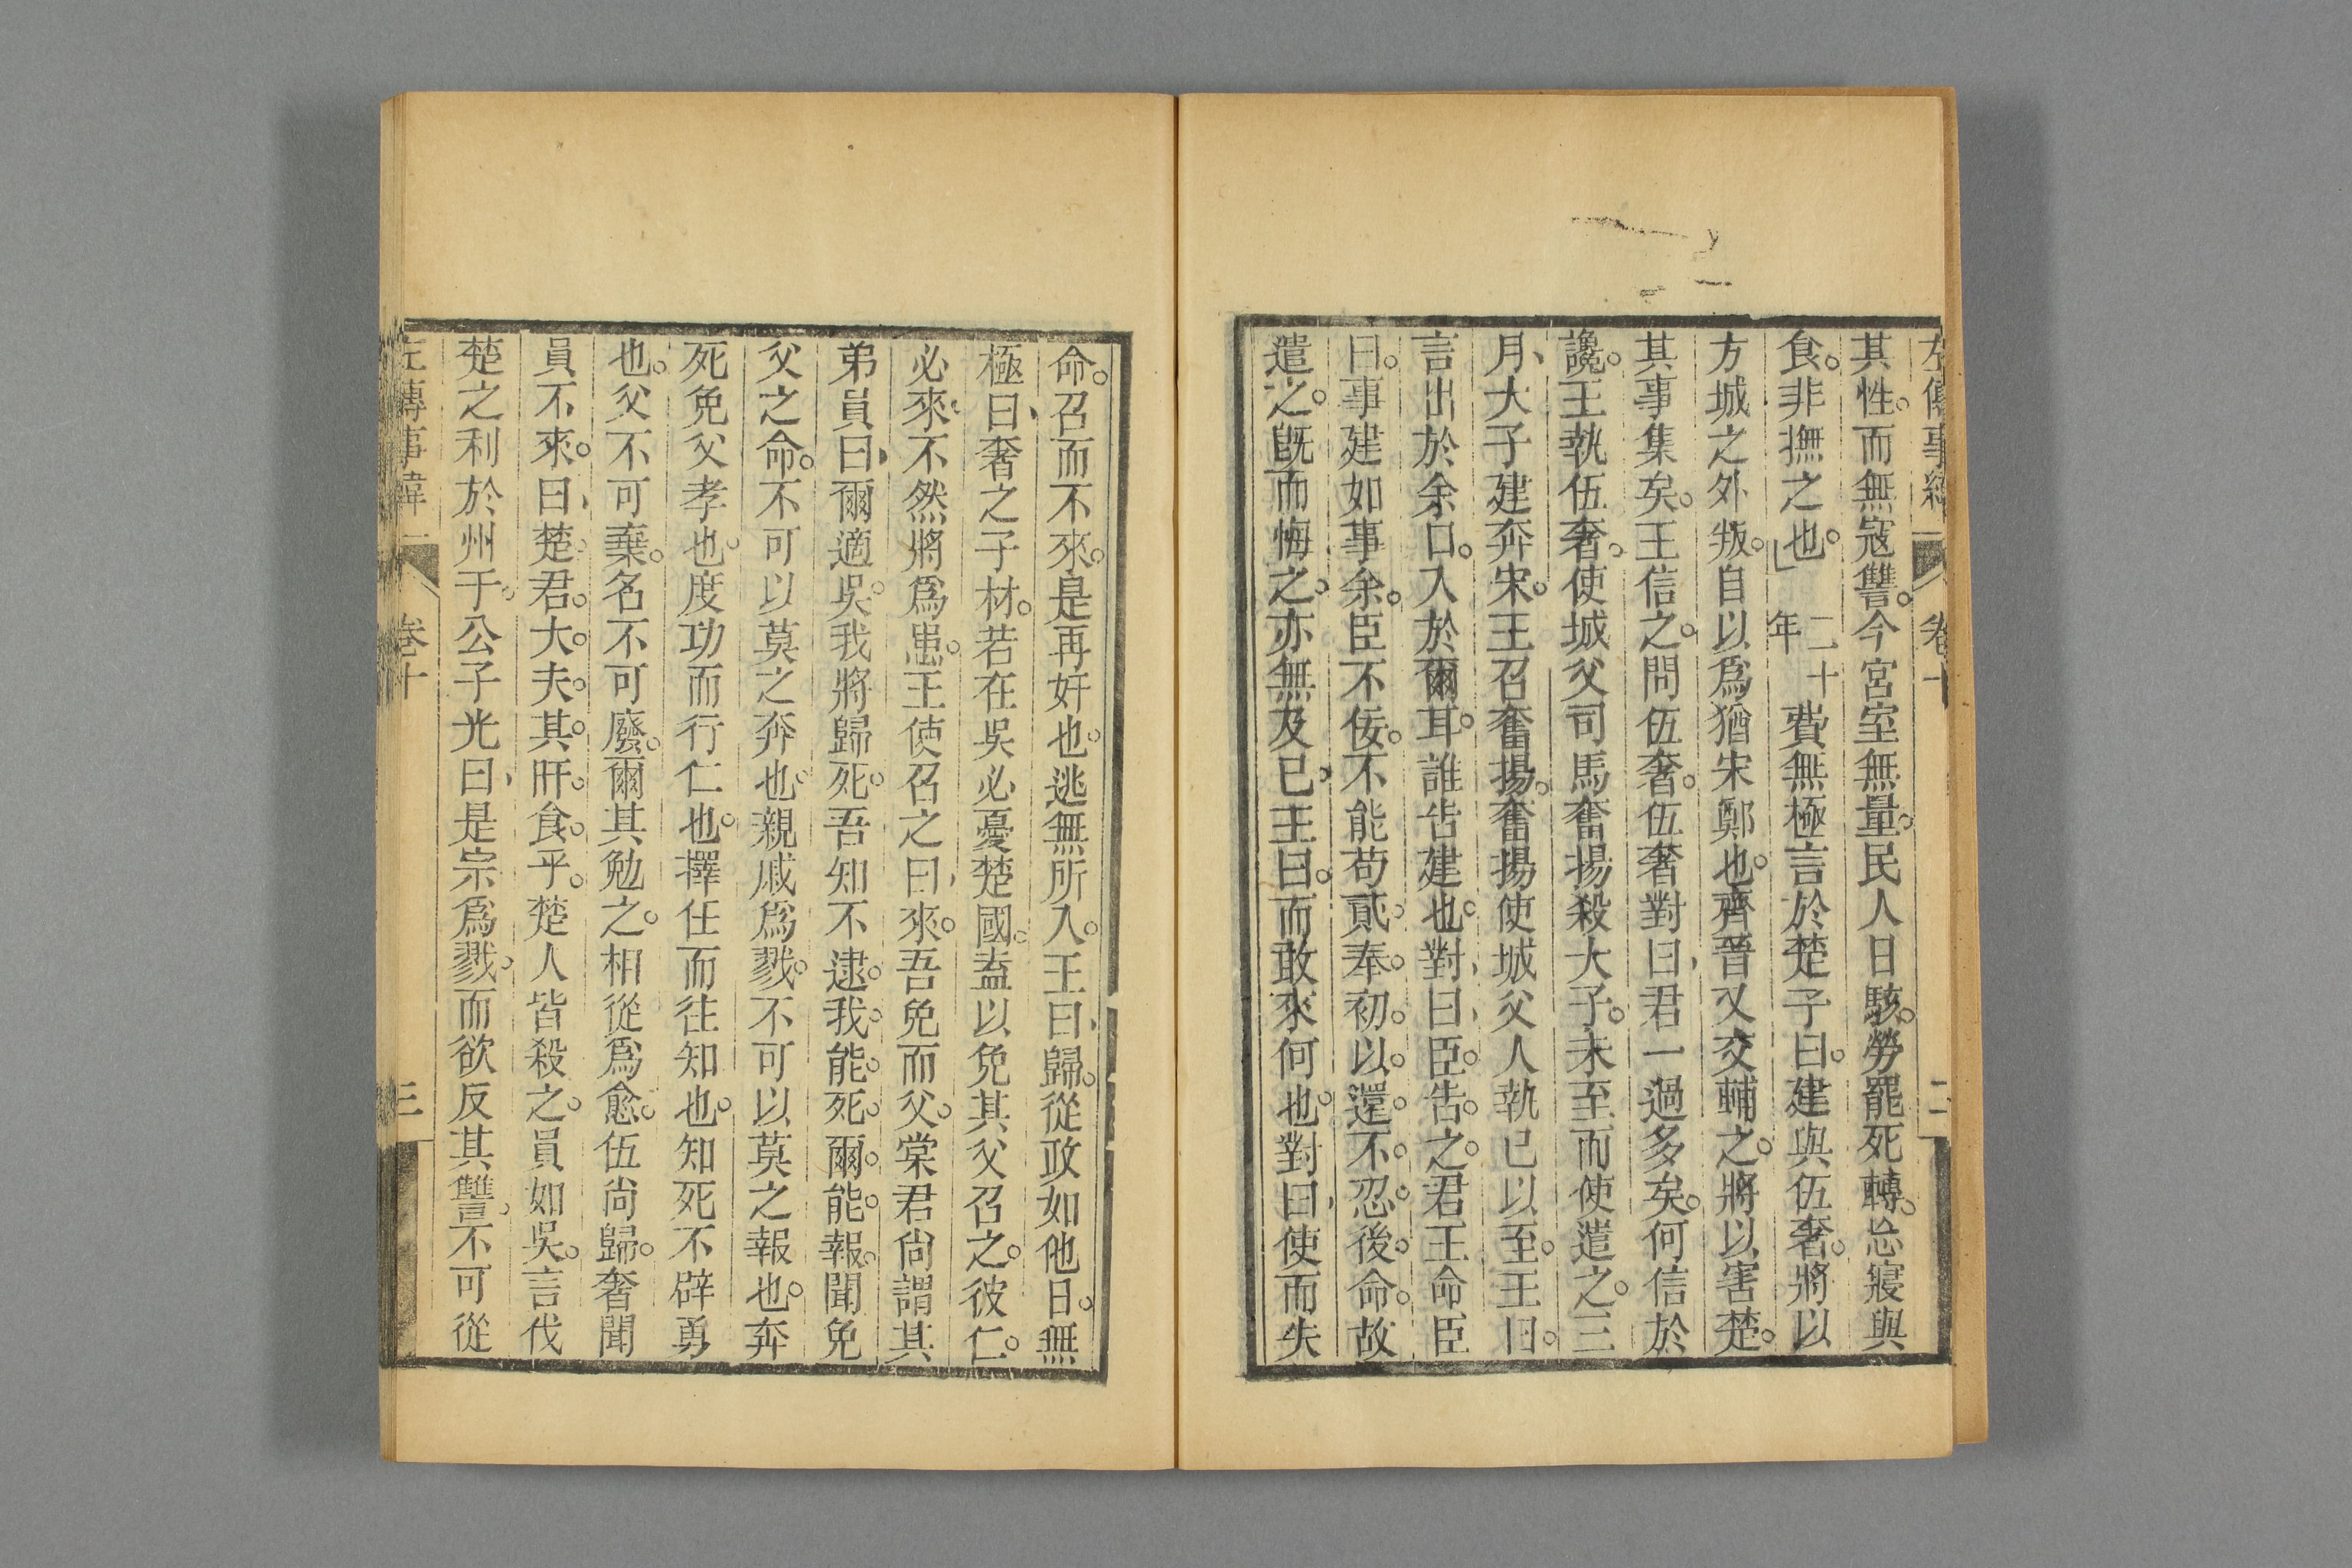 左傳事緯 卷十 二
其性。而無寇讐。今宮室無量。民人日駭。勞罷死轉。忘寢與
食。非撫之也。二十年費無極言於楚子曰。建與伍奢。將以
方城之外叛。自以爲猶宋鄭也。齊晉又交輔之。將以害楚。
其事集矣。王信之。問伍奢。伍奢對曰、君一過多矣。何信於
讒。王執伍奢。使城父司馬奮揚殺大子。未至而使遣之。三
月、大子建奔宋。王召奮揚。奮揚使城父人執已以至。王曰。
言出於余口。入於爾耳。誰告建也。對曰、臣告之。君王命臣
曰。事建如事余。臣不佞。不能苟貳。奉初以還。不忍後命。故
遣之。旣而悔之、亦無及已、王曰。而敢來何也。對曰、使而失
命。召而不來。是再奸也。逃無所入。王曰、歸。從政如他日。無
極曰、奢之子材。若在吳必憂楚國。盍以免其父召之。彼仁。
必來。不然將爲患。王使召之曰、來。吾免而父。棠君尙謂其
弟員曰、爾適吳。我將歸死。吾知不逮。我能死。爾能報。聞免
父之命。不可以莫之奔也。親戚爲戮。不可以莫之報也。奔
死免父孝也。度功而行仁也。擇任而往知也。知死不辟勇
也。父不可棄。名不可廢。爾其勉之。相從爲愈。伍尙歸。奢聞
員不來。曰、楚君大夫其旰食乎。楚人皆殺之。員如吳。言伐
楚之利於州于。公子光曰、是宗爲戮。而欲反其讐。不可從
左傳事緯 卷十 三